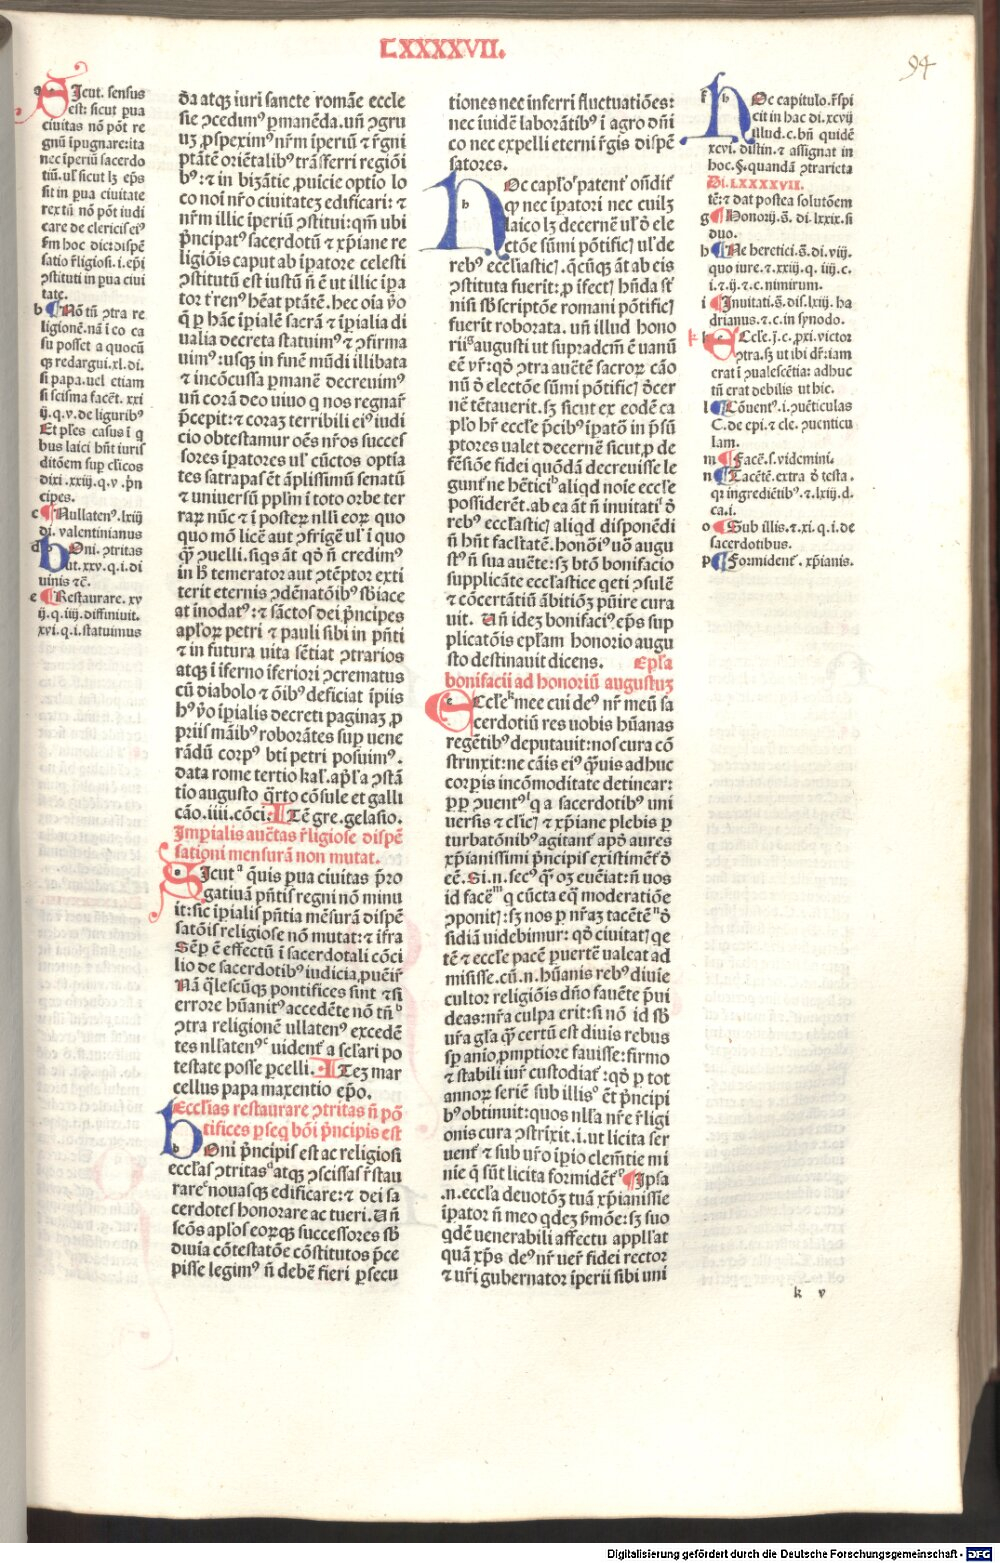 LXXXXVII.
94
Sicut. sensus
est: sicut pua
ciuitas nõ põt re
gnũ ĩpugnare: ita
nec ĩperiũ sacerdo
tiũ. ul' sicut lꝫ ep̃s
sit in pua ciuitate
rex tñ nõ põt iudi
care de clericis eiꝰ
ẜm hoc dic: dispẽ
satio r̃ligiosi .i. ep̃i
ↄstituti in pua ciui
tate.
b Nõ tñ ↄtra re
ligionẽ. nã ĩ eo ca
su posset a quocũ
qꝫ redargui. xl. di.
si papa. uel etiam
si scisma facẽt. xxi
ij. q. v. de liguribꝰ
Et p̃les casus ĩ q
bus laici hñt iuris
ditõem sup cl̃icos
dixi .xxiij. q. v. p̃n
cipes.
c Nullatenꝰ. lxiij
di. valentinianus
d Boni. ↄtritas
ut. xxv. q. i. di
uinis ⁊c̃.
e Restaurare. xv
ij. q. iiij. diffiniuit.
xvi. q. i. statuimus
d̃a atqꝫ iuri sancte romãe eccle
sie ↄcedimꝰ ꝑmanẽda. uñ ↄgru
uꝫ ꝓspeximꝰ nr̃m iperiũ ⁊ r̃gni
ptãtẽ oriẽtalibꝰ trãsferri regiõi
bꝰ: ⁊ in bizãtie ꝓuicie optio lo
co noĩ nr̃o ciuitateꝫ edificari: ⁊
nr̃m illic ĩperiũ ↄstitui: qm̃ ubi
p̃ncipatꝰ sacerdotũ ⁊ xp̃iane re
ligiõis caput ab ĩpatore celesti
ↄstitutũ est iustũ ñ ẽ ut illic ĩpa
tor t'renꝰ hẽat ptãtẽ. hec oĩa ṽo
q̃ ꝑ hãc ĩpialẽ sacrã ⁊ ĩpialia di
ualia decreta statuimꝰ ⁊ ↄfirma
uimꝰ: usqꝫ in finẽ mũdi illibata
⁊ incõcussa ꝑmanẽ decreuimꝰ
uñ corã deo uiuo q nos regnar̃
p̃cepit: ⁊ coraꝫ terribili eiꝰ iudi
cio obtestamur oẽs nr̃os succes
sores ĩpatores ul' cũctos optĩa
tes satrapas ẽt ãplissimũ senatũ
⁊ uniuersũ pplm̃ ĩ toto orbe ter
raꝝ nũc ⁊ ĩ posteꝝ nlli eoꝝ quo
quo mõ licẽ aut ↄfrigẽ ul' ĩ quo
q̃ ↄuelli. siqs ãt qd̃ ñ credimꝰ
in ḣ temerator aut ↄtẽptor exti
terit eternis ↄdẽnatõibꝰ sbiace
at inodatꝰ: ⁊ sãctos dei p̃ncipes
apl'oꝝ petri ⁊ pauli sibi in pñti
⁊ in futura uita sẽtiat ↄtrarios
atqꝫ ĩ iferno iferiori ↄcrematus
cũ diabolo ⁊ õibꝰ deficiat ĩpiis
hꝰ ṽo ĩpialis decreti paginaꝫ ꝓ
priis mãibꝰ roborãtes sup uene
rãdũ corpꝰ bti petri posuimꝰ.
data rome tertio kal'. apl'a ↄstã
tio augusto q̃rto cõsule et galli
cão. iiii. cõci: Itẽ gre. gelasio.
Imꝑialis auc̃tas r̃ligiose dispẽ
sationi mensurã non mutat.
Sicut a q̃uis pua ciuitas p̃ro
gatiuã pñtis regni nõ minu
it: sic ĩpialis pñtia mẽsurã dispẽ
satõis religiose nõ mutat: ⁊ ĩfra
Sẽp ẽ effectũ ĩ sacerdotali cõci
lio de sacerdotibꝰ iudicia ꝓuẽir̃
Nã q̃lescũqꝫ pontifices sint ⁊ si
errore hũanitꝰ accedẽte nõ tñ b
ↄtra religionẽ ullatenꝰ excedẽ
tes nllatenꝰ c uident' a sclari po
testate posse ꝑcelli. Iteꝫ mar
cellus papa maxentio ep̃o.
Eccl'ias restaurare ↄtritas ñ põ
tifices ꝑseq̃ bõi p̃ncipis est
Boni p̃ncipis est ac religiosi
eccl'as ↄtritas d atqꝫ ↄscissas r̃stau
rare e nouasqꝫ edificare: ⁊ dei sa
cerdotes honorare ac tueri. Uñ
scõs apl'os eoꝝqꝫ successores sb
diuĩa cõtestatõe cõstitutos p̃ce
pisse legimꝰ ñ debẽ fieri ꝑsecu
tiones nec inferri fluctuatiões:
nec ĩuidẽ laborãtibꝰ ĩ agro dñi
co nec expelli eterni r̃gis dispẽ
satores.
Hoc caplo f patent' oñdit'
qꝫ nec ĩpatori nec cuilꝫ
laico lꝫ decernẽ ul' d̃ ele
ctõe sũmi põtificꝭ ul' de
rebꝰ eccl'iasticꝭ. q̃cũqꝫ ãt ab eis
ↄstituta fuerit: ꝓ ĩfectꝭ hñda st'
nisi sb scriptõe romani põtificꝭ
fuerit roborata. uñ illud hono
rii g augusti ut supradcm̃ ẽ uanũ
eẽ vr̃: qd̃ ↄtra auc̃tẽ sacroꝝ cão
nũ d̃ electõe sũmi põtificꝭ d̃cer
nẽ tẽtauerit. sꝫ sicut ex eodẽ ca
plo hr̃ eccl'e p̃cibꝰ ĩpatõ in p̃sũ
ptores ualet decernẽ sicut ꝓ de
fẽsiõe fidei quõdã decreuisse le
gunt' ne h̃etici h aliqd noĩe eccl'e
possiderẽt. ab ea ãt ñ ĩnuitati i d̃
rebꝰ eccl'asticꝭ aliqd disponẽdi
ñ hñt facl'tatẽ. honõiꝰ uõ augu
stꝰ ñ sua auc̃te: sꝫ btõ bonifacio
supplicãte eccl'astice qeti ↄsulẽ
⁊ cõcertãtiũ ãbitiõꝭ pũire cura
uit. Uñ ideꝫ bonifaciꝰ ep̃s sup
plicatõis ep̃l'am honorio augu
sto destinauit dicens. Ep̃l'a
bonifacii ad honoriũ augustuꝫ
Eccl'e k mee cui deꝰ nr̃ meũ sa
cerdotiũ res uobis hũanas
regẽtibꝰ deputauit: nos cura cõ
strinxit: ne cãis eiꝰ q̃uis adhuc
corꝑis incõmoditate detinear:
ꝓp ↄuentꝰ l q a sacerdotibꝰ uni
uersis ⁊ cl'icꝭ ⁊ xp̃iane plebis ꝑ
turbatõnibꝰ agitant' apd̃ aures
xp̃ianissimi p̃ncipis existimẽt d̃
cẽ. Si. n. secꝰ q̃ oꝫ euẽiat: ñ uos
id facẽ m q cũcta eq̃ moderatiõe
ↄponitꝭ: sꝫ nos ꝑ nr̃aꝫ tacẽtẽ n d̃
sidiã uidebimur: qd̃ ciuitatꝭ qe
tẽ ⁊ eccl'e pacẽ ꝑuertẽ ualeat ad
misisse. cũ. n. hũanis rebꝰ diuĩe
cultor religiõis dño fauẽte p̃ui
deas: nr̃a culpa erit: si nõ id sb
ur̃a gl'a q̃ certũ est diuĩs rebus
sp aĩo ꝓmptiore fauisse: firmo
⁊ stabili iur̃ custodiat': qd̃ ꝑ tot
annoꝝ seriẽ sub illis o ẽt p̃ncipi
bꝰ obtinuit: quos nlla nr̃e r̃ligi
onis cura ↄstrĩxit .i. ut licita ser
uent' ⁊ sub ur̃o ĩpio clem̃tie mi
nie q̃ sũt licita formidẽt' p Ipsa
.n. eccl'a deuotõꝫ tuã xp̃ianissĩe
ĩpator ñ meo qdeꝫ ẜmõe: sꝫ suo
qdẽ uenerabili affectu appl'lat
quã xp̃s deꝰ nr̃ uer̃ fidei rector
⁊ ur̃i gubernator ĩperii sibi uni
f Hoc capitulo. r̃spi
cit in hac di. xcvij
illud. c. bñ quidẽ
xcvi. distin. ⁊ assignat in
hoc. §. quandã ↄtraricta
Di. LXXXXVII.
tẽ: ⁊ dat postea solutõem
g Honorij. s̃. di. lxxix. si
duo.
h Ne heretici. s̃. di. viij.
quo iure. ⁊. xxiij. q. iiij. c.
i. ⁊. ij. ⁊. c. nimirum.
i Inuitati. s̃. dis. lxiij. ha
drianus. ⁊. c. in synodo.
k Eccl'e. j. c. ꝓxi. victor
ↄtra. sꝫ ut ibi dr̃: iam
erat ĩ ↄualescẽtia: adhuc
tñ erat debilis ut hic.
l Cõuentꝰ. i. ↄuẽticulas
C. de epi. ⁊ cle. ↄuenticu
lam.
m Facẽ. s. videmini.
n Tacẽtẽ. extra d̃ testa.
qr ingrediẽtibꝰ. ⁊. lxiij. d.
ca. i.
o Sub illis. ⁊. xi. q. i. de
sacerdotibus.
p Formident'. xp̃ianis.
k v
Digitalisierung gefördert durch die Deutsche Forschungsgemeinschaft - DFG